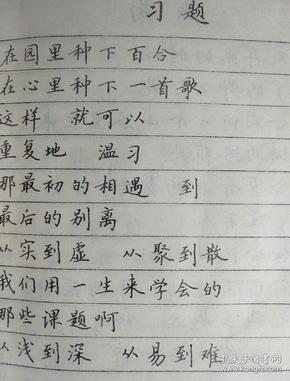 习题
在园里种下百合
在心里种下一首歌
这样 就可以
重复地 温习
那最初的相遇 到
最后的别离
从实到虚 从聚到散
我们用一生来学会的
那些课题啊
从浅到深 从易到难